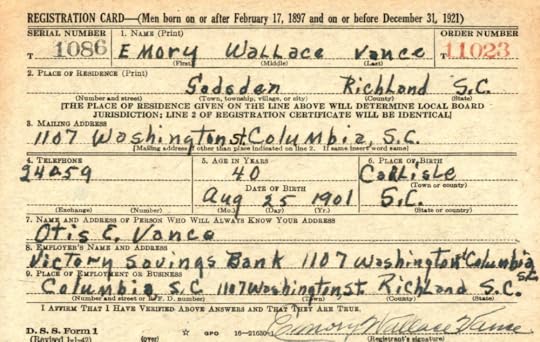 REGISTRATION CARD—(Men born on or after February 17, 1897 and on or before December 31, 1921)
SERIAL NUMBER 1. NAME (Print) ORDER NUMBER
T 1086 Emory Wallace Vance T 11023
(First) (Middle) (Last)
2. PLACE OF RESIDENCE (Print)
Gadsden Richland S.C.
(Number and street) (Town, township, village, or city) (County) (State)
[THE PLACE OF RESIDENCE GIVEN ON THE LINE ABOVE WILL DETERMINE LOCAL BOARD
JURISDICTION; LINE 2 OF REGISTRATION CERTIFICATE WILL BE IDENTICAL]
3. MAILING ADDRESS
1107 Washington st Columbia, S.C.
[Mailing address if other than place indicated on line 2. If same insert word same]
4. TELEPHONE 5. AGE IN YEARS 6. PLACE OF BIRTH
24059 40 Carlisle
DATE OF BIRTH (Town or county)
Aug 25 1901 S.C.
(Exchange) (Number) (Mo.) (Day) (Yr.) (State or country)
7. NAME AND ADDRESS OF PERSON WHO WILL ALWAYS KNOW YOUR ADDRESS
Otis E. Vance
8. EMPLOYER'S NAME AND ADDRESS
Victory Savings Bank 1107 Washington st Columbia
S.C.
9. PLACE OF EMPLOYMENT OR BUSINESS
Columbia, S.C 1107 Washington st. Richland S.C.
(Number and street or R. F. D. number) (Town) (County) (State)
I AFFIRM THAT I HAVE VERIFIED ABOVE ANSWERS AND THAT THEY ARE TRUE.
D. S. S. Form 1 Emory Wallace Vance
(Revised 1-1-42) (over) GPO 16—21630-1 (Registrant's signature)